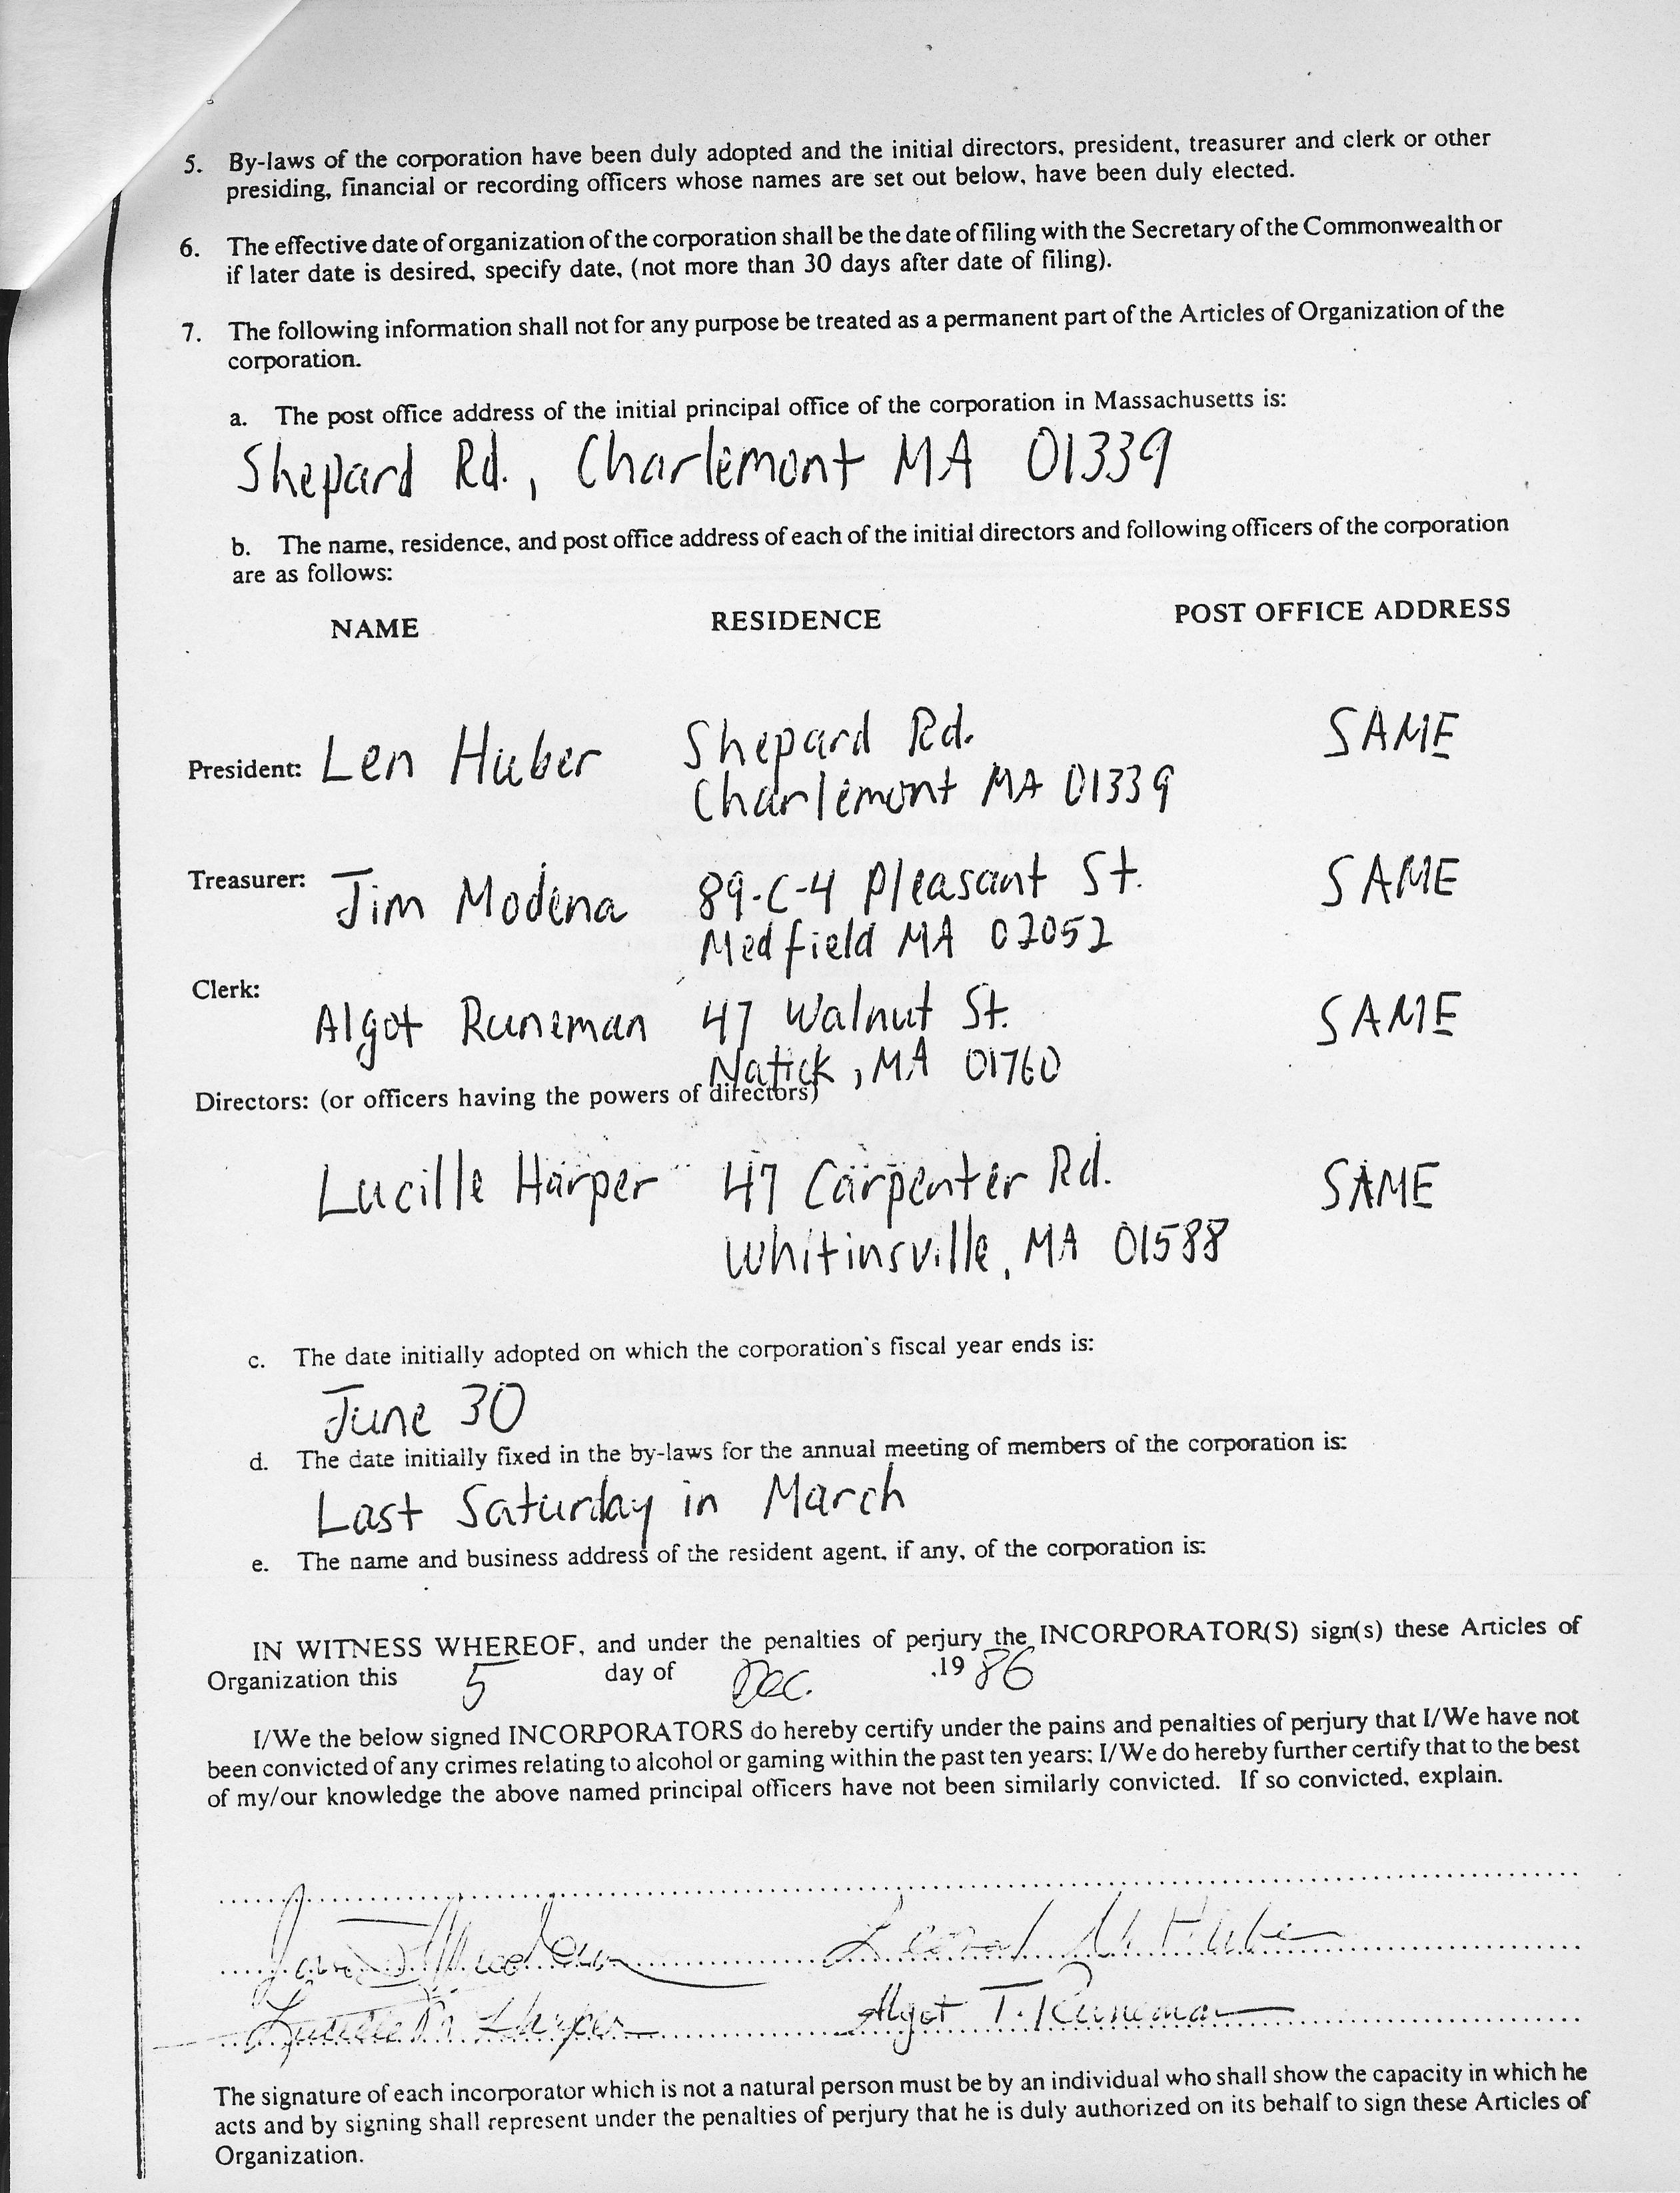 5. By-laws of the corporation have been duly adopted and the initial directors, president, treasurer and clerk or other
presiding, financial or recording officers whose names are set out below, have been duly elected.
6. The effective date of organization of the corporation shall be the date of filing with the Secretary of the Commonwealth or
if later date is desired, specify date, (not more than 30 days after date of filing).
7. The following information shall not for any purpose be treated as a permanent part of the Articles of Organization of the
corporation.
a. The post office address of the initial principal office of the corporation in Massachusetts is:
Shepard Rd., Charlemont MA 01339
b. The name, residence, and post office address of each of the initial directors and following officers of the corporation
are as follows:
NAME RESIDENCE POST OFFICE ADDRESS
President: Len Huber Shepard Rd. SAME
Charlemont MA 01339
Treasurer: Jim Modena 89-C-4 Pleasant St. SAME
Medfield MA 02052
Clerk: Algot Runeman 47 Walnut St. SAME
Natick, MA 01760
Directors: (or officers having the powers of directors)
Lucille Harper 47 Carpenter Rd. SAME
Whitinsville, MA 01588
c. The date initially adopted on which the corporation's fiscal year ends is:
June 30
d. The date initially fixed in the by-laws for the annual meeting of members of the corporation is:
Last Saturday in March
e. The name and business address of the resident agent, if any, of the corporation is:
IN WITNESS WHEREOF, and under the penalties of perjury the INCORPORATOR(S) sign(s) these Articles of
Organization this 5 day of Dec. ,19 86
I/We the below signed INCORPORATORS do hereby certify under the pains and penalties of perjury that I/We have not
been convicted of any crimes relating to alcohol or gaming within the past ten years; I/We do hereby further certify that to the best
of my/our knowledge the above named principal officers have not been similarly convicted. If so convicted, explain.
Algot T. Runeman
The signature of each incorporator which is not a natural person must be by an individual who shall show the capacity in which he
acts and by signing shall represent under the penalties of perjury that he is duly authorized on its behalf to sign these Articles of
Organization.